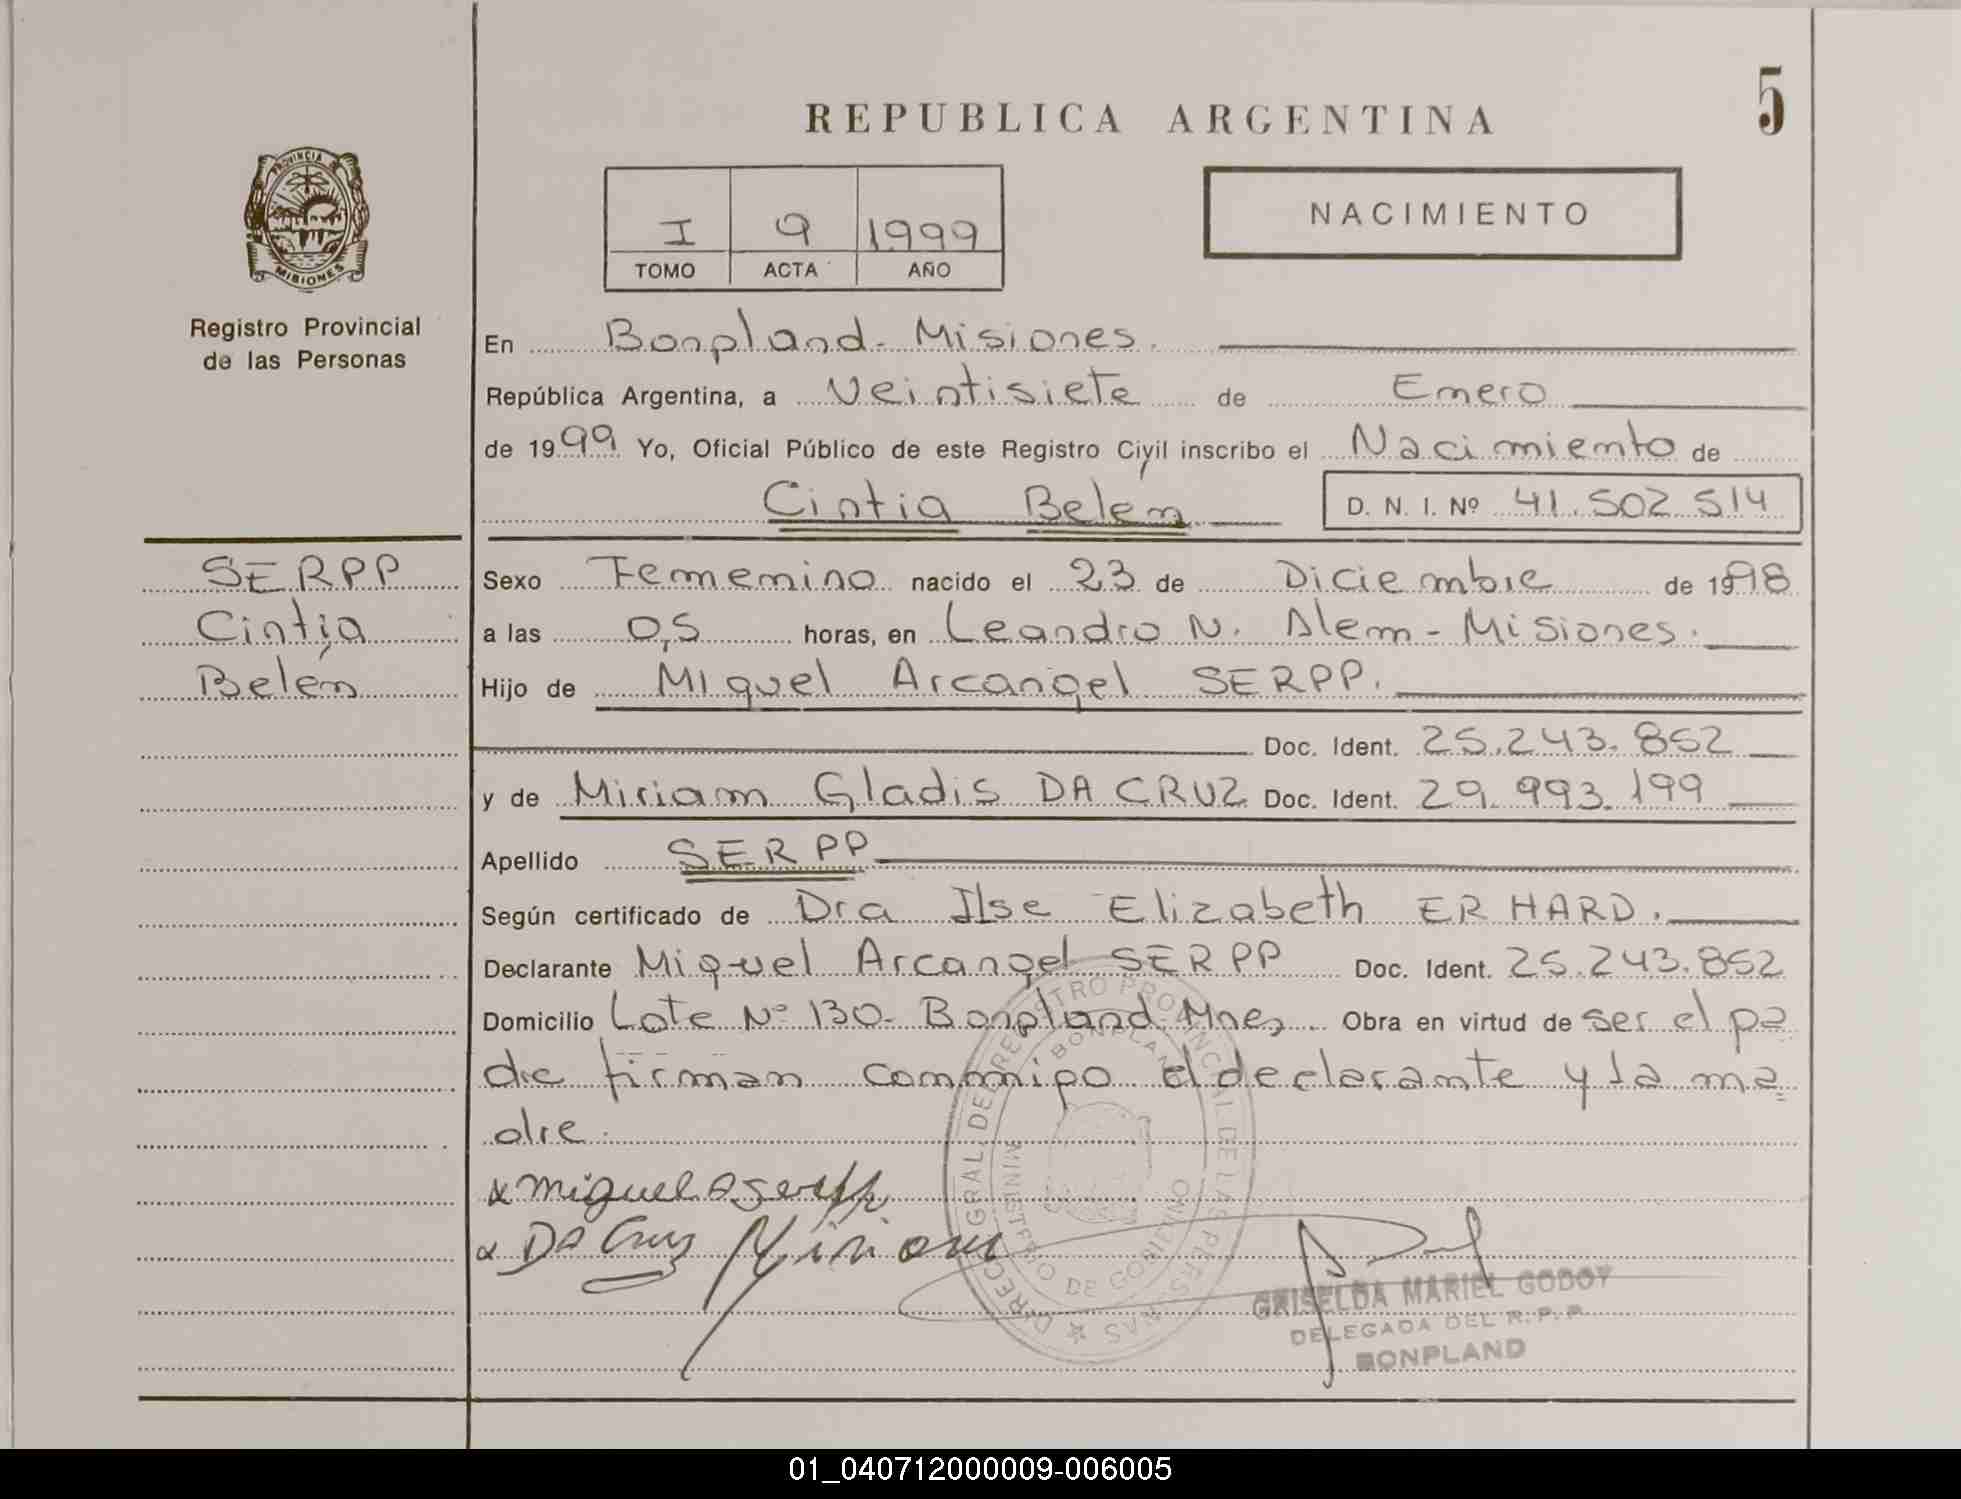 REPUBLICA ARGENTINA
5
PROVINCIA DE
MISIONES
Registro Provincial
de las Personas
I 9 1999
TOMO ACTA AÑO
NACIMIENTO
En Bonpland - Misiones.
República Argentina, a Veintisiete de Enero
de 1999 Yo, Oficial Público de este Registro Civil inscribo el Nacimiento de
Cintia Belén D. N. I. Nº 41.502.514
SERPP
Cintia
Belén
Sexo Femenino nacido el 23 de Diciembre de 1998
a las 0,5 horas, en Leandro N. Alem - Misiones.
Hijo de Miguel Arcangel SERPP.
Doc. Ident. 25.243.852
y de Miriam Gladis DA CRUZ Doc. Ident. 29.993.199
Apellido SERPP
Según certificado de Dra Ilse Elizabeth ERHARD.
Declarante Miguel Arcangel SERPP Doc. Ident. 25.243.852
Domicilio Lote Nº 130 - Bonpland Mnes, Obra en virtud de ser el pa
dre firman conmigo el declarante y la ma
dre.
x Miguel A Serpp
x Da Cruz Miriam
DIREC. GRAL. DEL REGISTRO PROVINCIAL DE LAS PERSONAS
BONPLAND
MINISTERIO DE GOBIERNO
GRISELDA MARIEL GODOY
DELEGADA DEL R. P. P.
BONPLAND
01_040712000009-006005